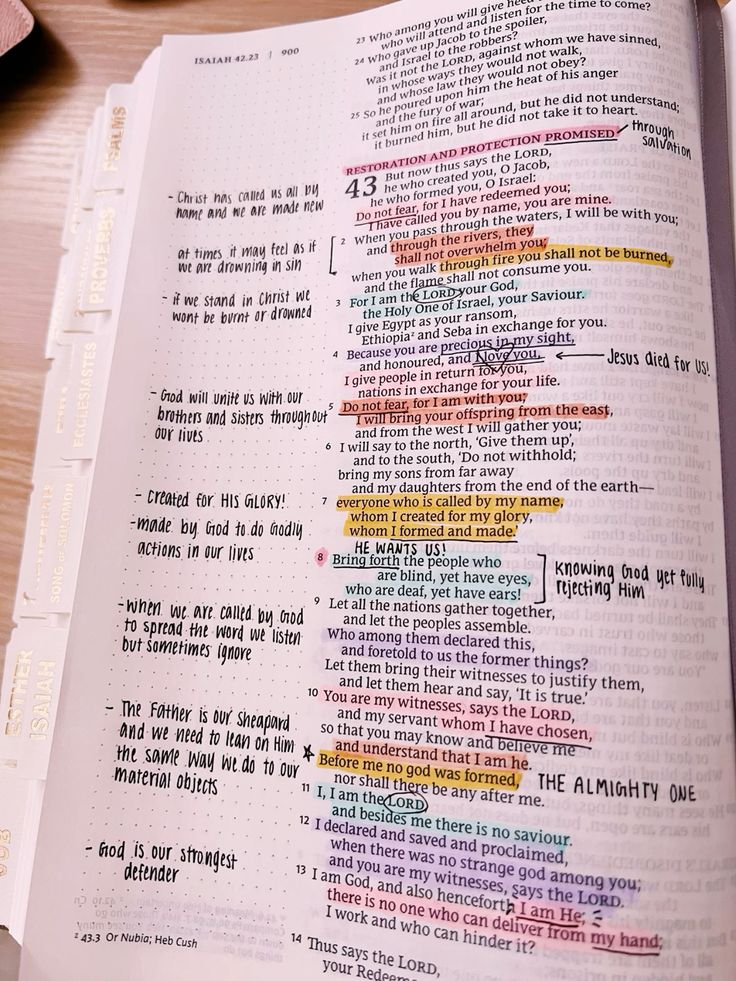 ISAIAH 42.23 | 900
23 Who among you will give heed
who will attend and listen for the time to come?
24 Who gave up Jacob to the spoiler,
and Israel to the robbers?
Was it not the LORD, against whom we have sinned,
in whose ways they would not walk,
and whose law they would not obey?
25 So he poured upon him the heat of his anger
and the fury of war;
it set him on fire all around, but he did not understand;
it burned him, but he did not take it to heart.
RESTORATION AND PROTECTION PROMISED
through salvation
43 But now thus says the LORD,
he who created you, O Jacob,
he who formed you, O Israel:
Do not fear, for I have redeemed you;
I have called you by name, you are mine.
2 When you pass through the waters, I will be with you;
and through the rivers, they
shall not overwhelm you;
when you walk through fire you shall not be burned,
and the flame shall not consume you.
3 For I am the LORD your God,
the Holy One of Israel, your Saviour.
I give Egypt as your ransom,
Ethiopia z and Seba in exchange for you.
4 Because you are precious in my sight,
and honoured, and I love you,
Jesus died for US!
I give people in return for you,
nations in exchange for your life.
5 Do not fear, for I am with you;
I will bring your offspring from the east,
and from the west I will gather you;
6 I will say to the north, 'Give them up',
and to the south, 'Do not withhold;
bring my sons from far away
and my daughters from the end of the earth—
7 everyone who is called by my name,
whom I created for my glory,
whom I formed and made.'
HE WANTS US!
8 Bring forth the people who
are blind, yet have eyes,
who are deaf, yet have ears!
Knowing God yet fully
rejecting Him
9 Let all the nations gather together,
and let the peoples assemble.
Who among them declared this,
and foretold to us the former things?
Let them bring their witnesses to justify them,
and let them hear and say, 'It is true.'
10 You are my witnesses, says the LORD,
and my servant whom I have chosen,
so that you may know and believe me
and understand that I am he.
Before me no god was formed,
nor shall there be any after me.
THE ALMIGHTY ONE
11 I, I am the LORD
and besides me there is no saviour.
12 I declared and saved and proclaimed,
when there was no strange god among you;
and you are my witnesses, says the LORD.
13 I am God, and also henceforth I am He;
there is no one who can deliver from my hand;
I work and who can hinder it?
14 Thus says the LORD,
your Redeem
- Christ has called us all by
name and we are made new
at times it may feel as if
we are drowning in sin
- if we stand in Christ we
wont be burnt or drowned
- God will unite us with our
brothers and sisters throughout
our lives
- Created for HIS GLORY!
- made by God to do Godly
actions in our lives
- when we are called by God
to spread the word we listen
but sometimes ignore
- The Father is our sheapard
and we need to lean on Him
the same way we do to our
material objects
- God is our strongest
defender
z 43.3 Or Nubia; Heb Cush
PSALMS
PROVERBS
ECCLESIASTES
SONG OF SOLOMON
ISAIAH
ESTHER
JOB